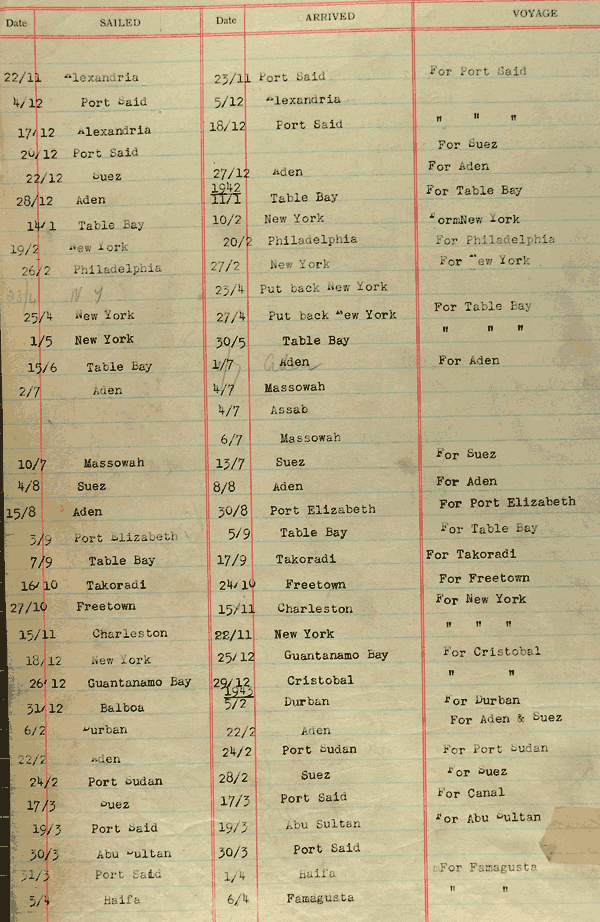 Date SAILED Date ARRIVED VOYAGE
22/11 Alexandria 23/11 Port Said For Port Said
4/12 Port Said 5/12 Alexandria
17/12 Alexandria 18/12 Port Said " " "
20/12 Port Said For Suez
22/12 Suez 27/12 Aden For Aden
1942
28/12 Aden 11/1 Table Bay For Table Bay
14/1 Table Bay 10/2 New York FormNew York
19/2 New York 20/2 Philadelphia For Philadelphia
26/2 Philadelphia 27/2 New York For New York
N Y 23/4 Put back New York
25/4 New York 27/4 Put back New York For Table Bay
1/5 New York 30/5 Table Bay " " "
15/6 Table Bay 1/7 Aden For Aden
2/7 Aden 4/7 Massowah
4/7 Assab
6/7 Massowah
10/7 Massowah 13/7 Suez For Suez
4/8 Suez 8/8 Aden For Aden
15/8 Aden 30/8 Port Elizabeth For Port Elizabeth
3/9 Port Elizabeth 5/9 Table Bay For Table Bay
7/9 Table Bay 17/9 Takoradi For Takoradi
16/10 Takoradi 24/10 Freetown For Freetown
27/10 Freetown 15/11 Charleston For New York
15/11 Charleston 22/11 New York " " "
18/12 New York 25/12 Guantanamo Bay For Cristobal
26/12 Guantanamo Bay 29/12 Cristobal " "
1943
31/12 Balboa 5/2 Durban For Durban
6/2 Durban 22/2 Aden For Aden & Suez
22/2 Aden 24/2 Port Sudan For Port Sudan
24/2 Port Sudan 28/2 Suez For Suez
17/3 Suez 17/3 Port Said For Canal
19/3 Port Said 19/3 Abu Sultan For Abu Sultan
30/3 Abu Sultan 30/3 Port Said
31/3 Port Said 1/4 Haifa mFor Famagusta
5/4 Haifa 6/4 Famagusta " "